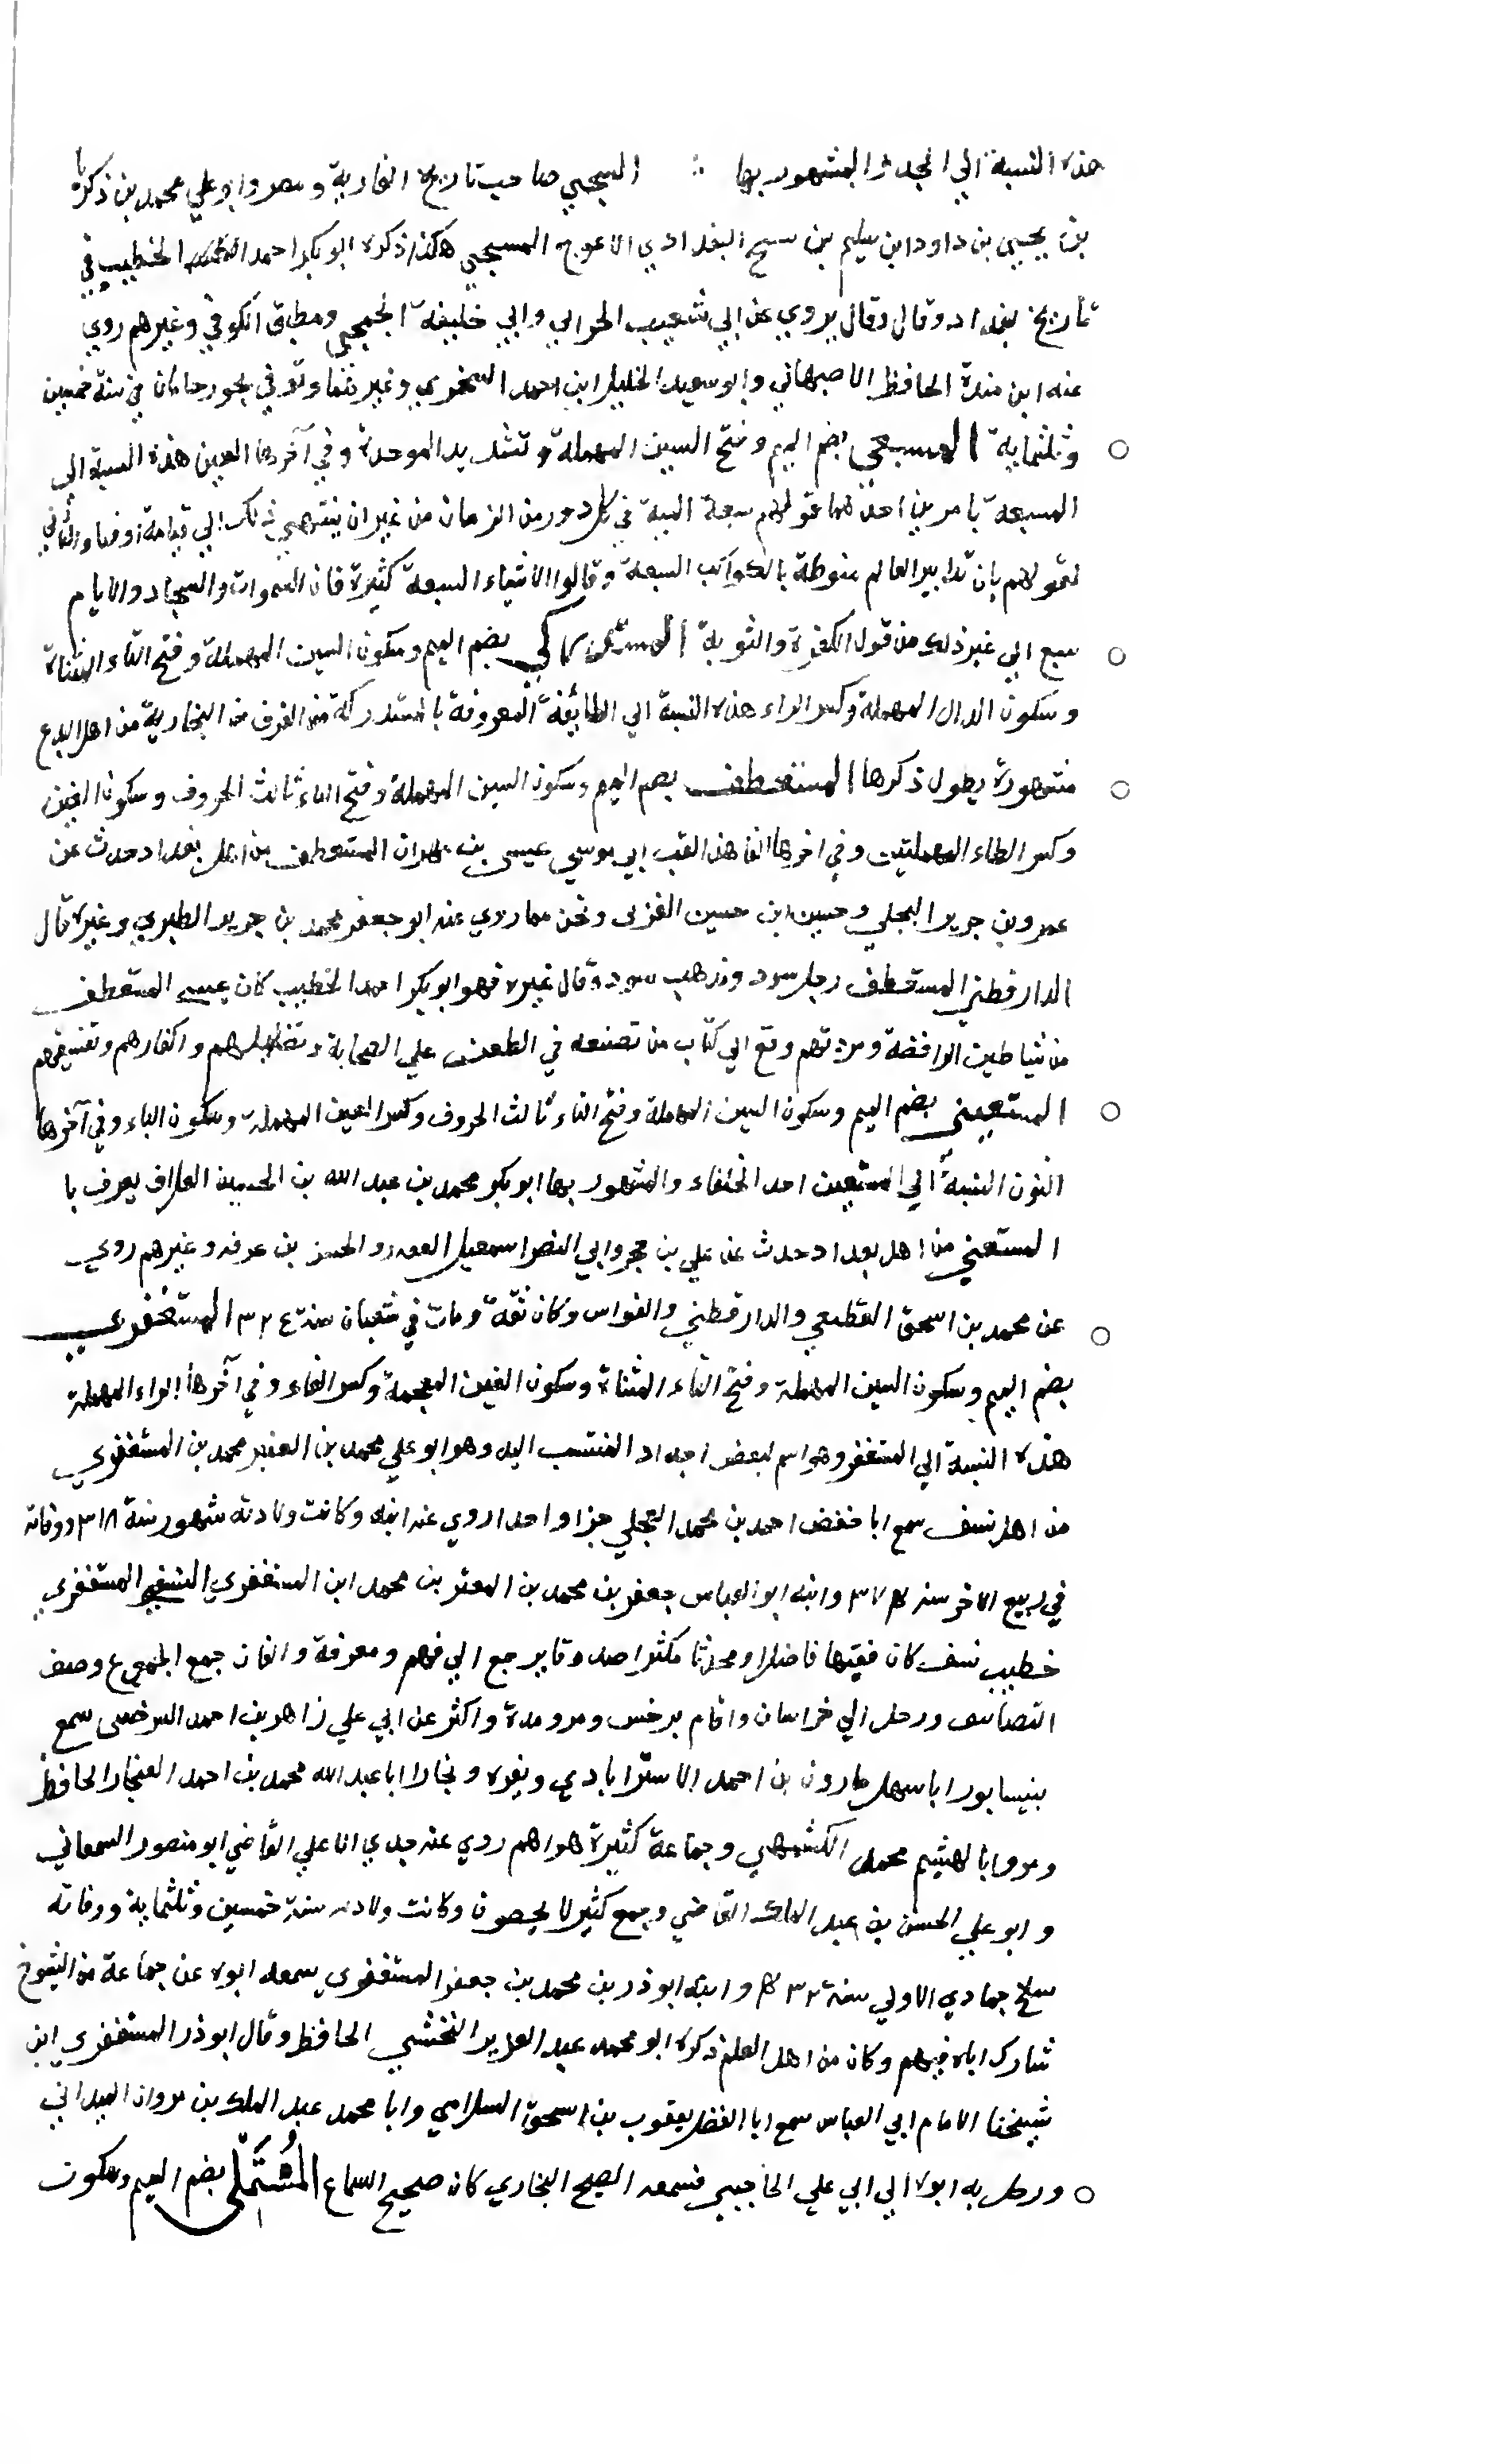 هذه النسبة الي الجد والمشهور بها ∴ المسبحي صاحب تاريخ المغاربة ومصر وابو علي محمد بن ذكريا
بن يحيي بن داود ابن سليم بن مسبح البغدادي الاعوج المسبحي هكذا ذكره ابو بكر احمد الخطيب في
تأريخ بغداد وقال وقال يروي عن ابي شعيب الحراني وابي خليفة الجمحي ومطين الكوفي وغيرهم روي
عنه ابن مندة الحافظ الاصبهاني وابو سعيد الخليل ابن احمد السجزي وغيرهما وتوفي بجوزجانان في سنة خمسين
وثلثماية المسبعي بضم الميم وفتح السين المهملة وتشديد الموحدة وفي آخرها العين هذه النسبة الى
المسبعة بامرين احدهما قولهم سبعة البية في كل دور من الزمان من غير ان ينتهي ذلك الي قيامة او فنا والثاني
لقولهم بان تدابير العالم منوطة بالكواكب السبعة وقالوا الاشياء السبعة كثيرة فان السموات والبحار والايام
سبع الي غير ذلك من قول الكفرة والثنوية المستدركي بضم الميم وسكون السين المهملة وفتح التاء المثناة
وسكون الدال المهملة وكسر الراء هذه النسبة الي الطائفة المعروفة بالمستدركة من الفرق من النجارية من اهل البدع
مشهورة يطول ذكرها المستعطف بضم الميم وسكون السين المهملة وفتح التاء ثالث الحروف وسكون العين
وكسر الطاء المهملتين وفي اخرها الفا هذا لقب ابي موسي عيسى بن مهران المستعطف من اهل بغداد حدث عن
عمرو بن جرير البجلي وحسين ابن حسين العرني ونحن مما روي عنه ابو جعفر محمد بن جرير الطبري وغيره قال
الدارقطني المستعطف رجل سوء ومذهب سوء وقال غيره فهو ابو بكر احمد الخطيب كان عيسى المستعطف
من شياطين الرافضة ومردتهم وقع الي كتاب من تصنعه في الطعن علي الصحابة وتضليلهم واكفارهم وتفسيقهم
المستعيني بضم الميم وسكون السين المهملة وفتح التاء ثالث الحروف وكسر العين المهملة وسكون الياء وفي آخرها
النون النسبة الي المستعين احد الخلفاء والمشهور بها ابو بكر محمد بن عبد الله بن الحسين العلاف يعرف با
المستعيني من اهل بغداد حدث عن علي بن حجر وابي النصر اسمعيل الفقيه والحسن بن عرفه وغيرهم روي
عن محمد بن اسحق القطيعي والدارقطني والقواس وكان ثقة ومات في شعبان سنة ٣٢٤ المستغفري
بضم الميم وسكون السين المهملة وفتح التاء المثناة وسكون الغين المعجمة وكسر الفاء وفي آخرها الراء المهملة
هذه النسبة الي المستغفر وهو اسم لبعض اجداد المنتسب اليه وهو ابو علي محمد بن المعتز محمد بن المستغفري
من اهل نسف سمع ابا حفص احمد بن محمد العجلي جزا واحدا روي عنه ابنه وكانت ولادته شهور سنة ٣١٨ ووفاته
في ربيع الاخر سنة ٣٧٤ وابنه ابو العباس جعفر بن محمد بن المعتز بن محمد ابن المستغفري النسفي المستغفري
خطيب نسف كان فقيها فاضلا ومحدثا مكثرا صدوقا يرجع الي فهم ومعرفة واتقان جمع الجموع وصنف
التصانيف ورحل الي خراسان واقام بسرخس ومرو مدة واكثر عن ابي علي زاهر بن احمد السرخسي سمع
بنيسابور ابا سهل هارون بن احمد الاستراباذي وبغيره وبخارا ابا عبد الله محمد بن احمد الغنجار الحافظ
ومرو ابا الهيثم محمد الكشمهني وجماعة كثيرة سواهم روي عنه جدي الاعلي القاضي ابو منصور السمعاني
وابو علي الحسن بن عبد الملك القاضي وجمع كثير لا يحصون وكانت ولادته سنة خمسين وثلثماية ووفاته
سلخ جمادي الاولي سنة ٤٣٢ وابنه ابو ذر بن محمد بن جعفر المستغفري سمعه ابوه عن جماعة من الشيوخ
شارك اباه فيهم وكان من اهل العلم ذكره ابو محمد عبد العزيز النخشبي الحافظ وقال ابو ذر المستغفري ابن
شيخنا الامام ابي العباس سمع ابا الفضل يعقوب بن اسحق السلامي وابا محمد عبد الملك بن مروان الميداني
ورحل به ابوه الي ابي علي الحاجبي فسمعه الصيح البخاري كان صحيح السماع المُسْتَمْلي بضم الميم وسكون